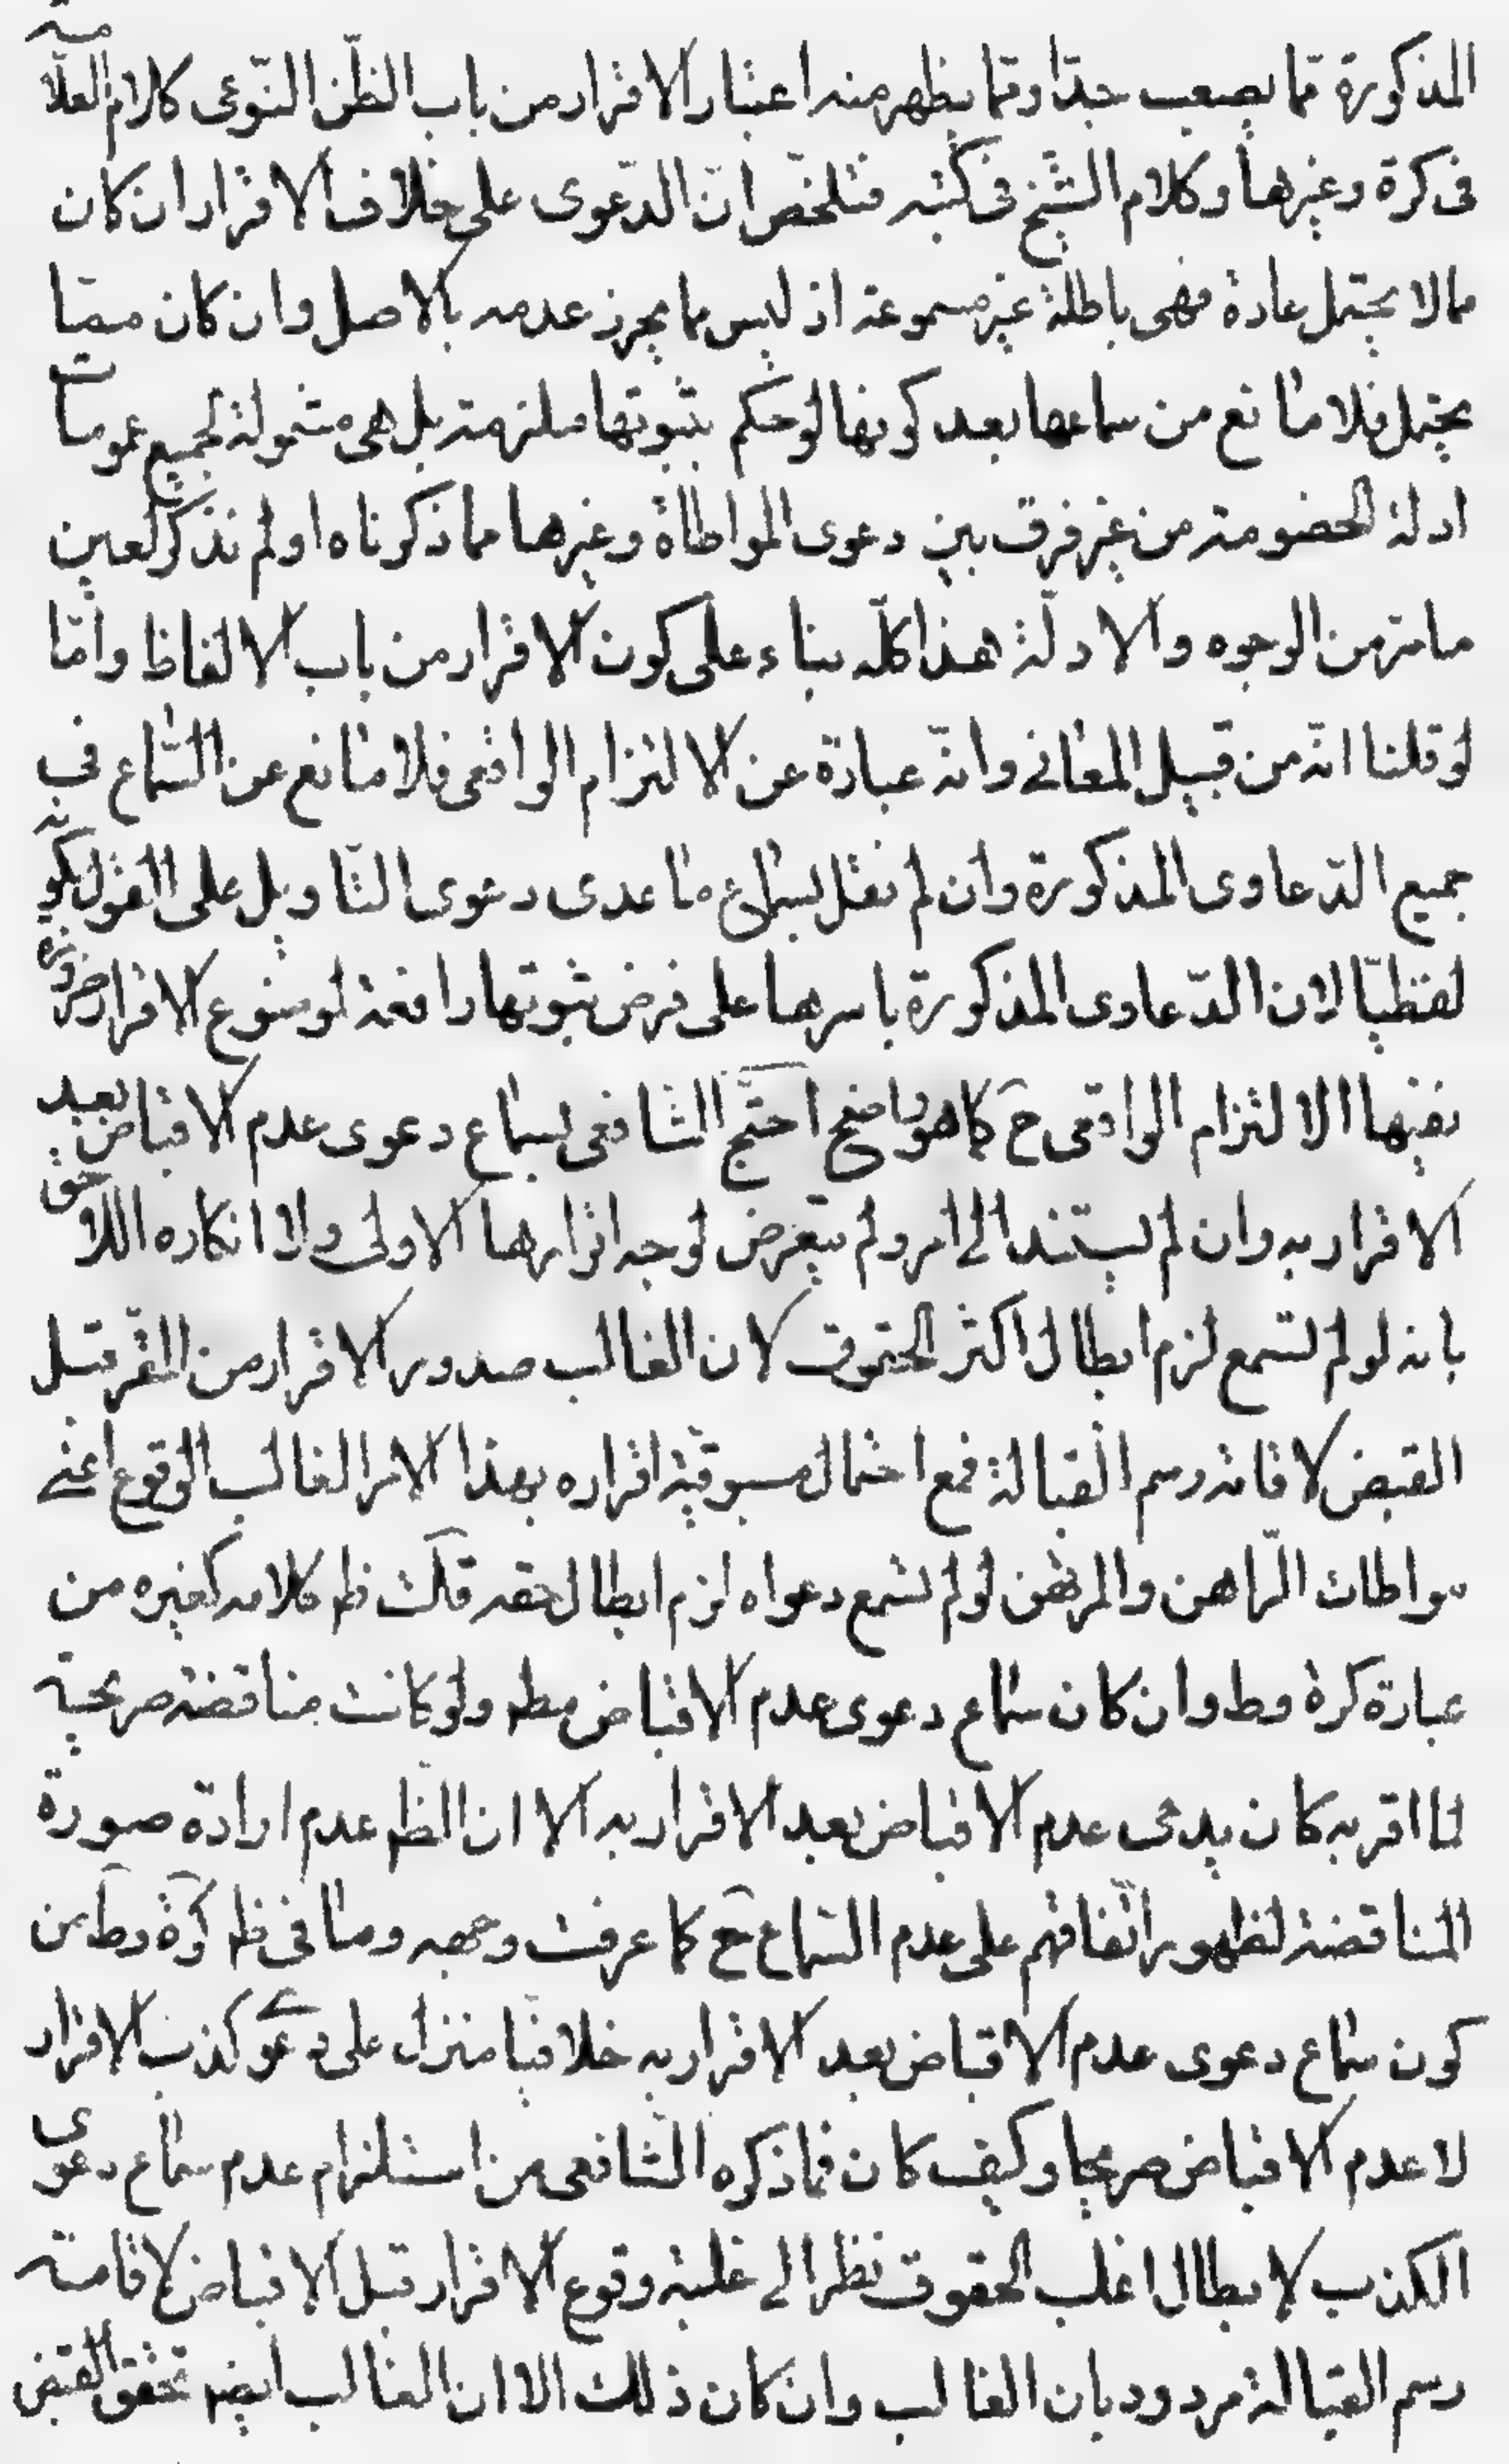 المذكورة ممّا يصعب جدّا وممّا يظهر منه اعتبار الاقرار من باب الظّن النّوعى كلام العلّامة
فى كرة وغيرها وكلام الشّيخ فى كتبه فتلخّص انّ الدّعوى على خلاف الاقرار ان كان
مما لا يحتمل عادة فهى باطلة غير مسموعة اذ ليس مما يحرز عدمه بالاصل وان كان ممّا
يحتمل فلا مانع من سماعها بعد كونها لو حكم بثبوتها ملزمة بل هى مشمولة لجميع عمومات
ادلة الخصومة من غير فرق بين دعوى المواطاة وغيرها مما ذكرناه او لم نذكر لعين
ما مر من الوجوه والادلّة هذا كلّه بناء على كون الاقرار من باب الالفاظ وامّا
لو قلنا انّه من قبيل المعانى وانّه عبارة عن الالتزام الواقعى فلا مانع عن السّماع فى
جميع الدّعاوى المذكورة وان لم نقل بسماع ما عدى دعوى التّاويل على القول بكونه
لفظيّا لان الدّعاوى المذكورة باسرها على فرض ثبوتها رافعة لموضوع الاقرار ضرورة
نفيها الالتزام الواقعى ح كما هو واضح احتجّ الشافعى بسماع دعوى عدم الاقباض بعد
الاقرار به وان لم يستند الى امر ولم يتعرض لوجه اقرارها الاولى ولا انكاره اللاحق
بانه لو لم تسمع لزم ابطال اكثر الحقوق لان الغالب صدور الاقرار من المقرّ قبل
القبض لاقامة رسم القبالة فمع احتمال مسبوقيّة اقراره بهذا الامر الغالب الوقوع اعنى
مواطات الرّاهن والمرتهن لو لم تسمع دعواه لزم ابطال حقه قلت ظ كلامه كغيره من
عبارة كرة وط وان كان سماع دعوى عدم الاقباض مط ولو كانت مناقضة صريحية
لما اقر به كان يدعى عدم الاقباض بعد الاقرار به الا ان الظ عدم ارادة صورة
المناقضة لظهور اتّفاقهم على عدم السّماع ح كما عرفت وجهه وما فى ظ كرة وط من
كون سماع دعوى عدم الاقباض بعد الاقرار به خلافيا منزل على دعوى كذب الاقرار
لا عدم الاقباض صريحا وكيف كان فما ذكره الشّافعى من استلزام عدم سماع دعوى
الكذب لابطال اغلب الحقوق نظرا الى غلبة وقوع الاقرار قبل الاقباض لاقامة
رسم القبالة مردود بان الغالب وان كان ذلك الا ان الغالب ايضا تحقق القبض